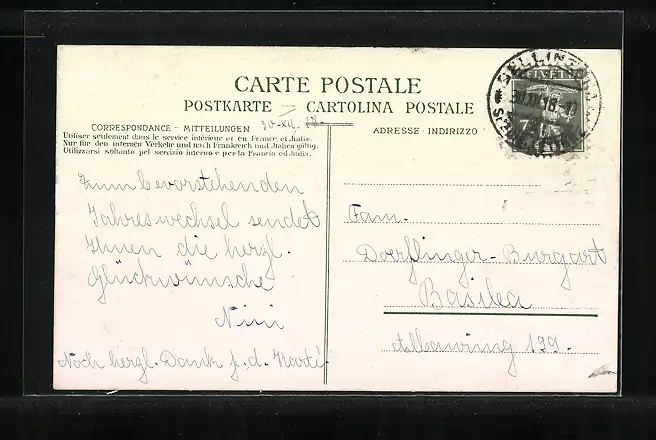 CARTE POSTALE
POSTKARTE – CARTOLINA POSTALE
CORRESPONDANCE - MITTEILUNGEN 30-XII. 18.
ADRESSE · INDIRIZZO
Utiliser seulement dans le service intérieur et en France et Italie.
Nur für den internen Verkehr und nach Frankreich und Italien gültig.
Utilizzarsi soltanto pel servizio interno e per la Francia ed Italia.
BELLINZONA
30.XII.18
Zum bevorstehenden
Jahreswechsel sendet
Ihnen die herzl.
Glückwünsche
Nini
Noch herzl. Dank f. d. Karte.
Fam.
Doerflinger-Burgart
Basilea
199.